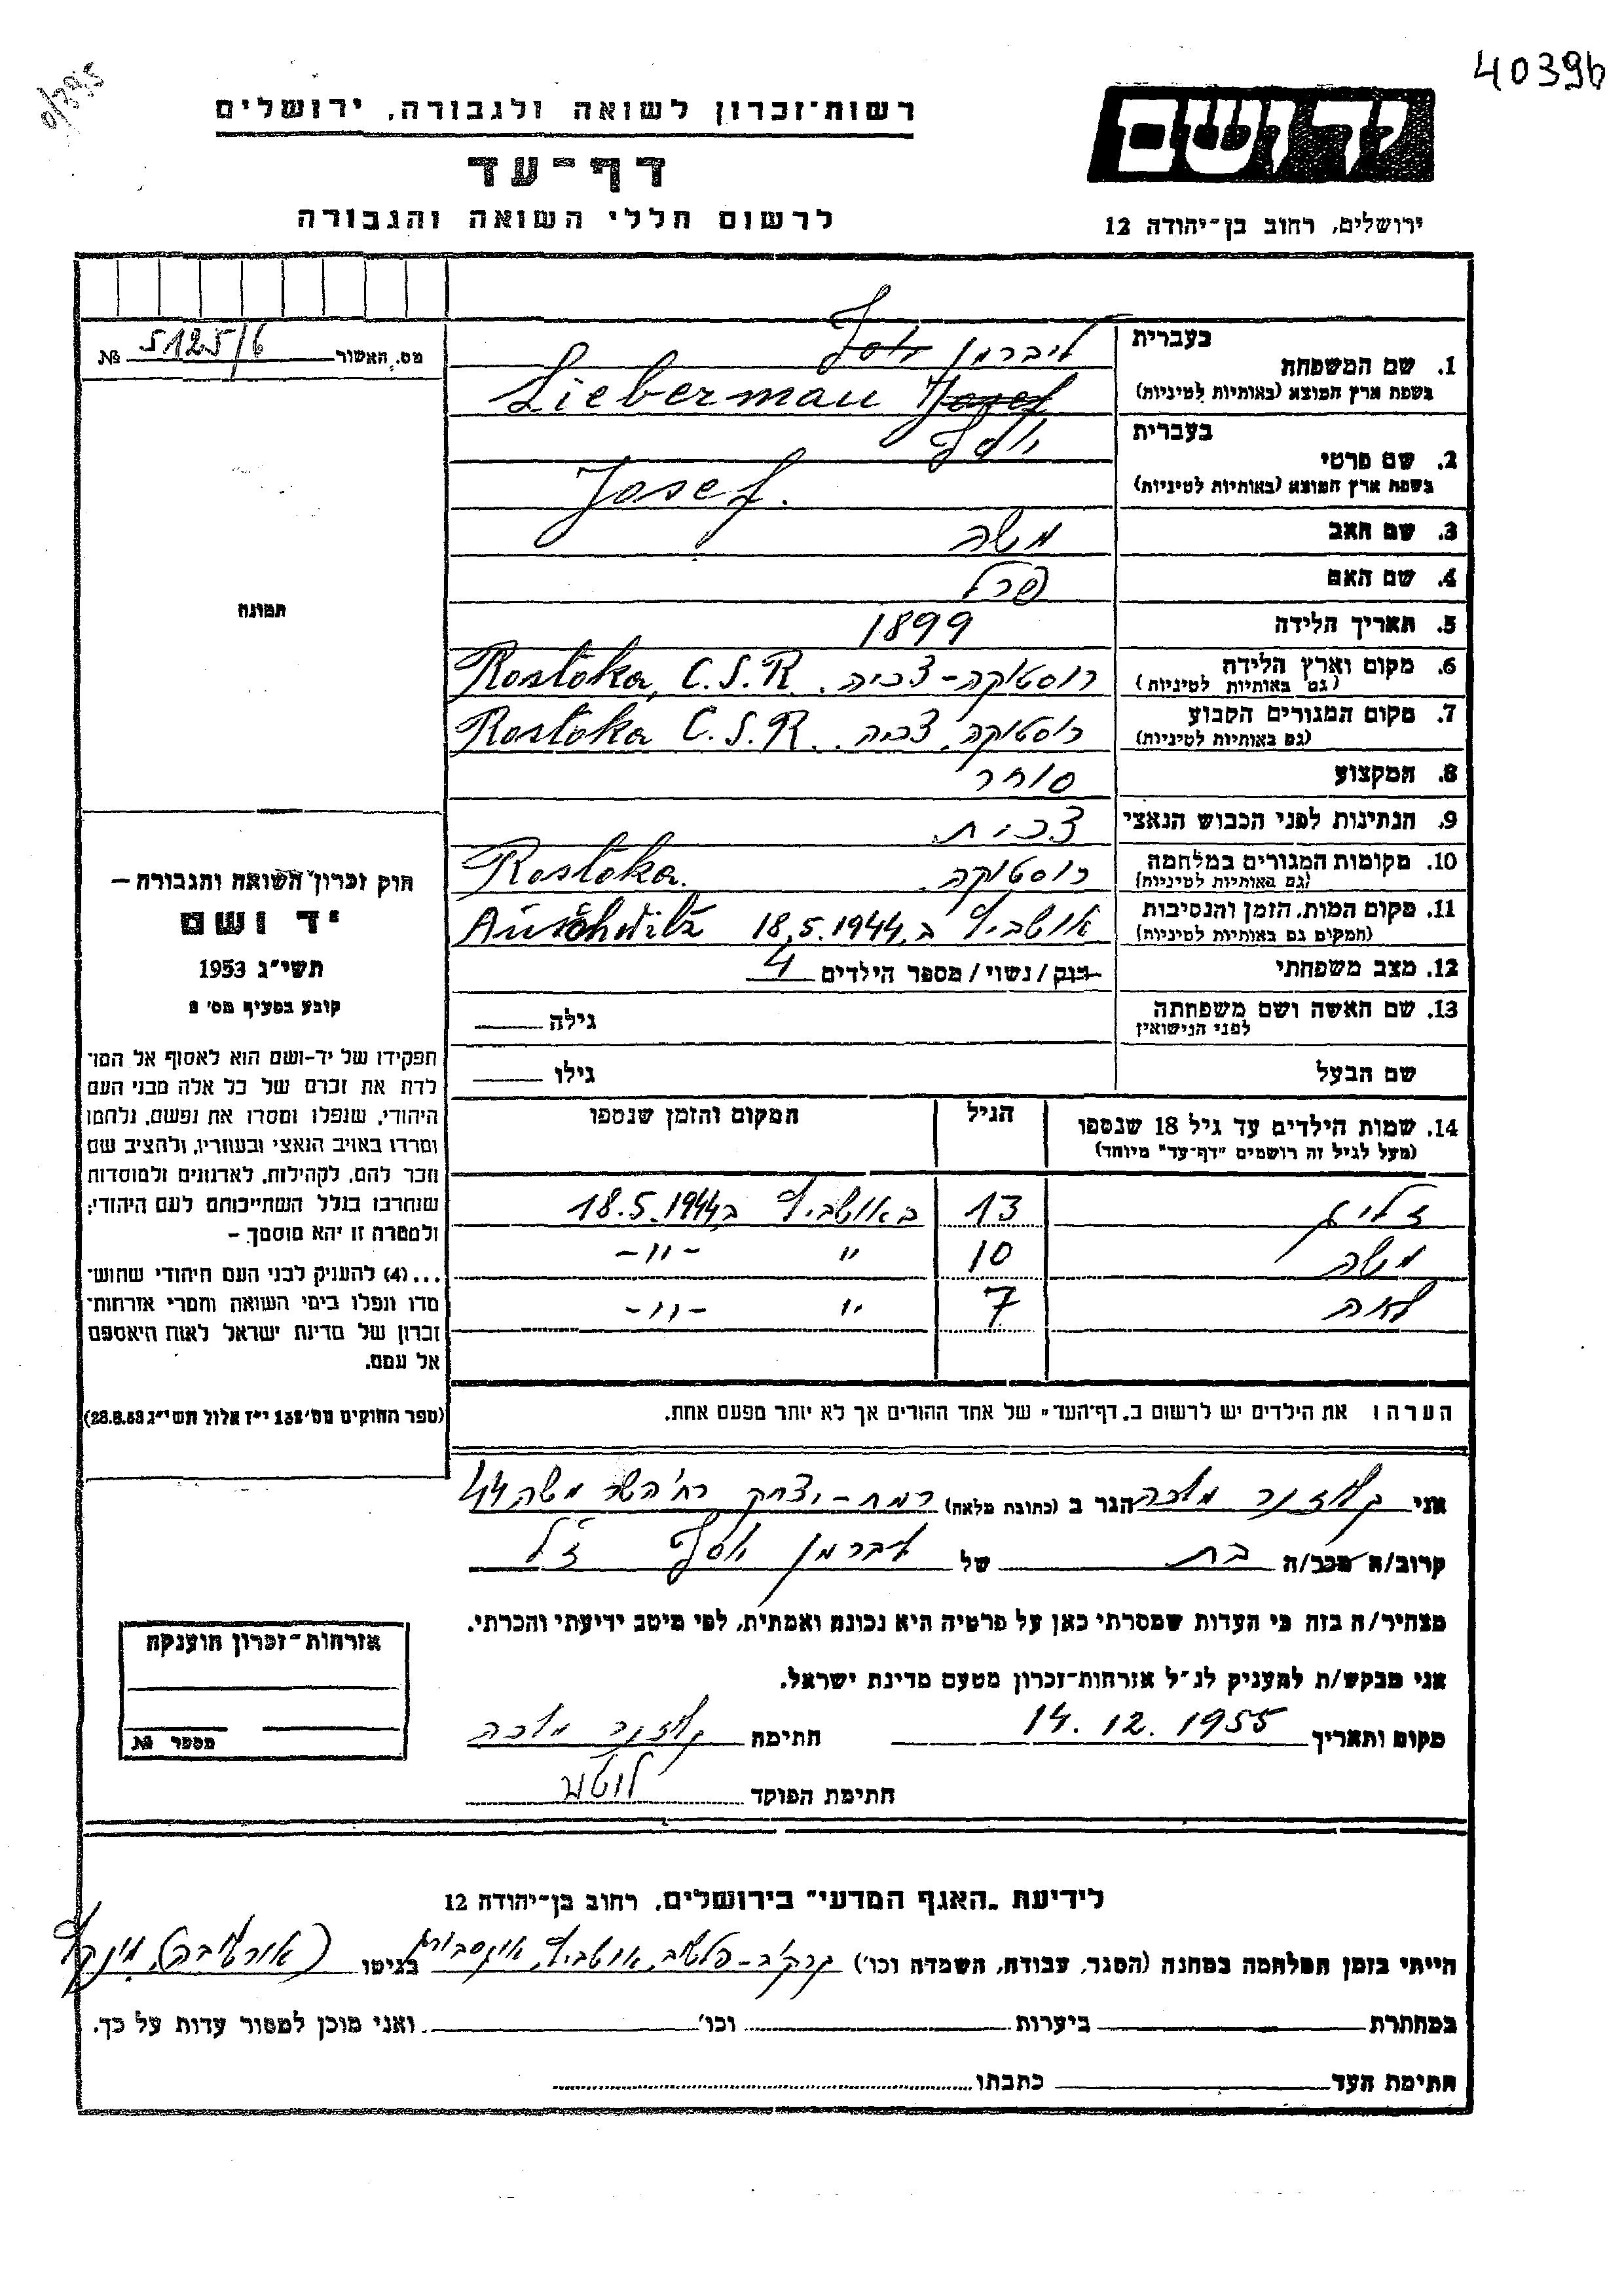 40396
רשות־זכרון לשואה ולגבורה, ירושלים
יד ושם
דף־עד
לרשום חללי השואה והגבורה
ירושלים, רחוב בן־יהודה 12
מס. האשור 5125/6 №
בעברית
1. שם המשפחה ליברמן יוסף
בשפת ארץ המוצא (באותיות לטיניות) Lieberman Josef
בעברית
2. שם פרטי יוסף
בשפת ארץ המוצא (באותיות לטיניות) Josef.
3. שם האב משה
4. שם האם פרל
5. תאריך הלידה 1899
6. מקום וארץ הלידה רוסטוקה-צכיה. Rostoka, C.S.R.
(גם באותיות לטיניות)
7. מקום המגורים הקבוע רוסטוקה, צכיה. Rostoka C.S.R.
(גם באותיות לטיניות)
8. המקצוע סוחר
9. הנתינות לפני הכבוש הנאצי צכית.
10. מקומות המגורים במלחמה רוסטוקה. Rostoka.
(גם באותיות לטיניות)
11. מקום המות, הזמן והנסיבות אושביץ ב 18.5.1944 Auschwitz
(המקום גם באותיות לטיניות)
12. מצב משפחתי רווק / נשוי / מספר הילדים 4
13. שם האשה ושם משפחתה גילה
לפני הנישואין
שם הבעל גילו
14. שמות הילדים עד גיל 18 שנספו הגיל המקום והזמן שנספו
(מעל לגיל זה רושמים "דף־עד" מיוחד)
זליג 13 באושביץ ב 18.5.1944
משה 10 " -"-
לאה 7 " -"-
הערה: את הילדים יש לרשום ב„דף־העד" של אחד ההורים אך לא יותר מפעם אחת.
תמונה
חוק זכרון השואה והגבורה —
יד ושם
תשי"ג 1953
קובע בסעיף מס' 2
תפקידו של יד-ושם הוא לאסוף אל המו־
לדת את זכרם של כל אלה מבני העם
היהודי, שנפלו ומסרו את נפשם, נלחמו
ומרדו באויב הנאצי ובעוזריו, ולהציב שם
וזכר להם, לקהילות, לארגונים ולמוסדות
שנחרבו בגלל השתייכותם לעם היהודי;
ולמטרה זו יהא מוסמך —
...(4) להעניק לבני העם היהודי שהוש־
מדו ונפלו בימי השואה והמרי אזרחות־
זכרון של מדינת ישראל לאות היאספם
אל עמם.
(ספר החוקים מס' 132 י"ז אלול תשי"ג 28.8.53)
אני מלכה הגר ב (כתובת מלאה) רמת-יצחק רח' משה 44
קרוב/ה מכב/ה בת של ליברמן יוסף ז"ל
מצהיר/ה בזה כי העדות שמסרתי כאן על פרטיה היא נכונה ואמתית, לפי מיטב ידיעתי והכרתי.
אני מבקש/ת להעניק לנ"ל אזרחות־זכרון מטעם מדינת ישראל.
מקום ותאריך 14.12.1955 חתימה מלכה
חתימת הפוקד
אזרחות־זכרון הוענקה
מספר №
לידיעת „האגף המדעי" בירושלים, רחוב בן־יהודה 12
הייתי בזמן המלחמה במחנה (הסגר, עבודה, השמדה וכו') קרקוב-פלשוב, אושביץ, בגיטו
במחתרת ביערות וכו' ואני מוכן למסור עדות על כך.
חתימת העד כתבתו